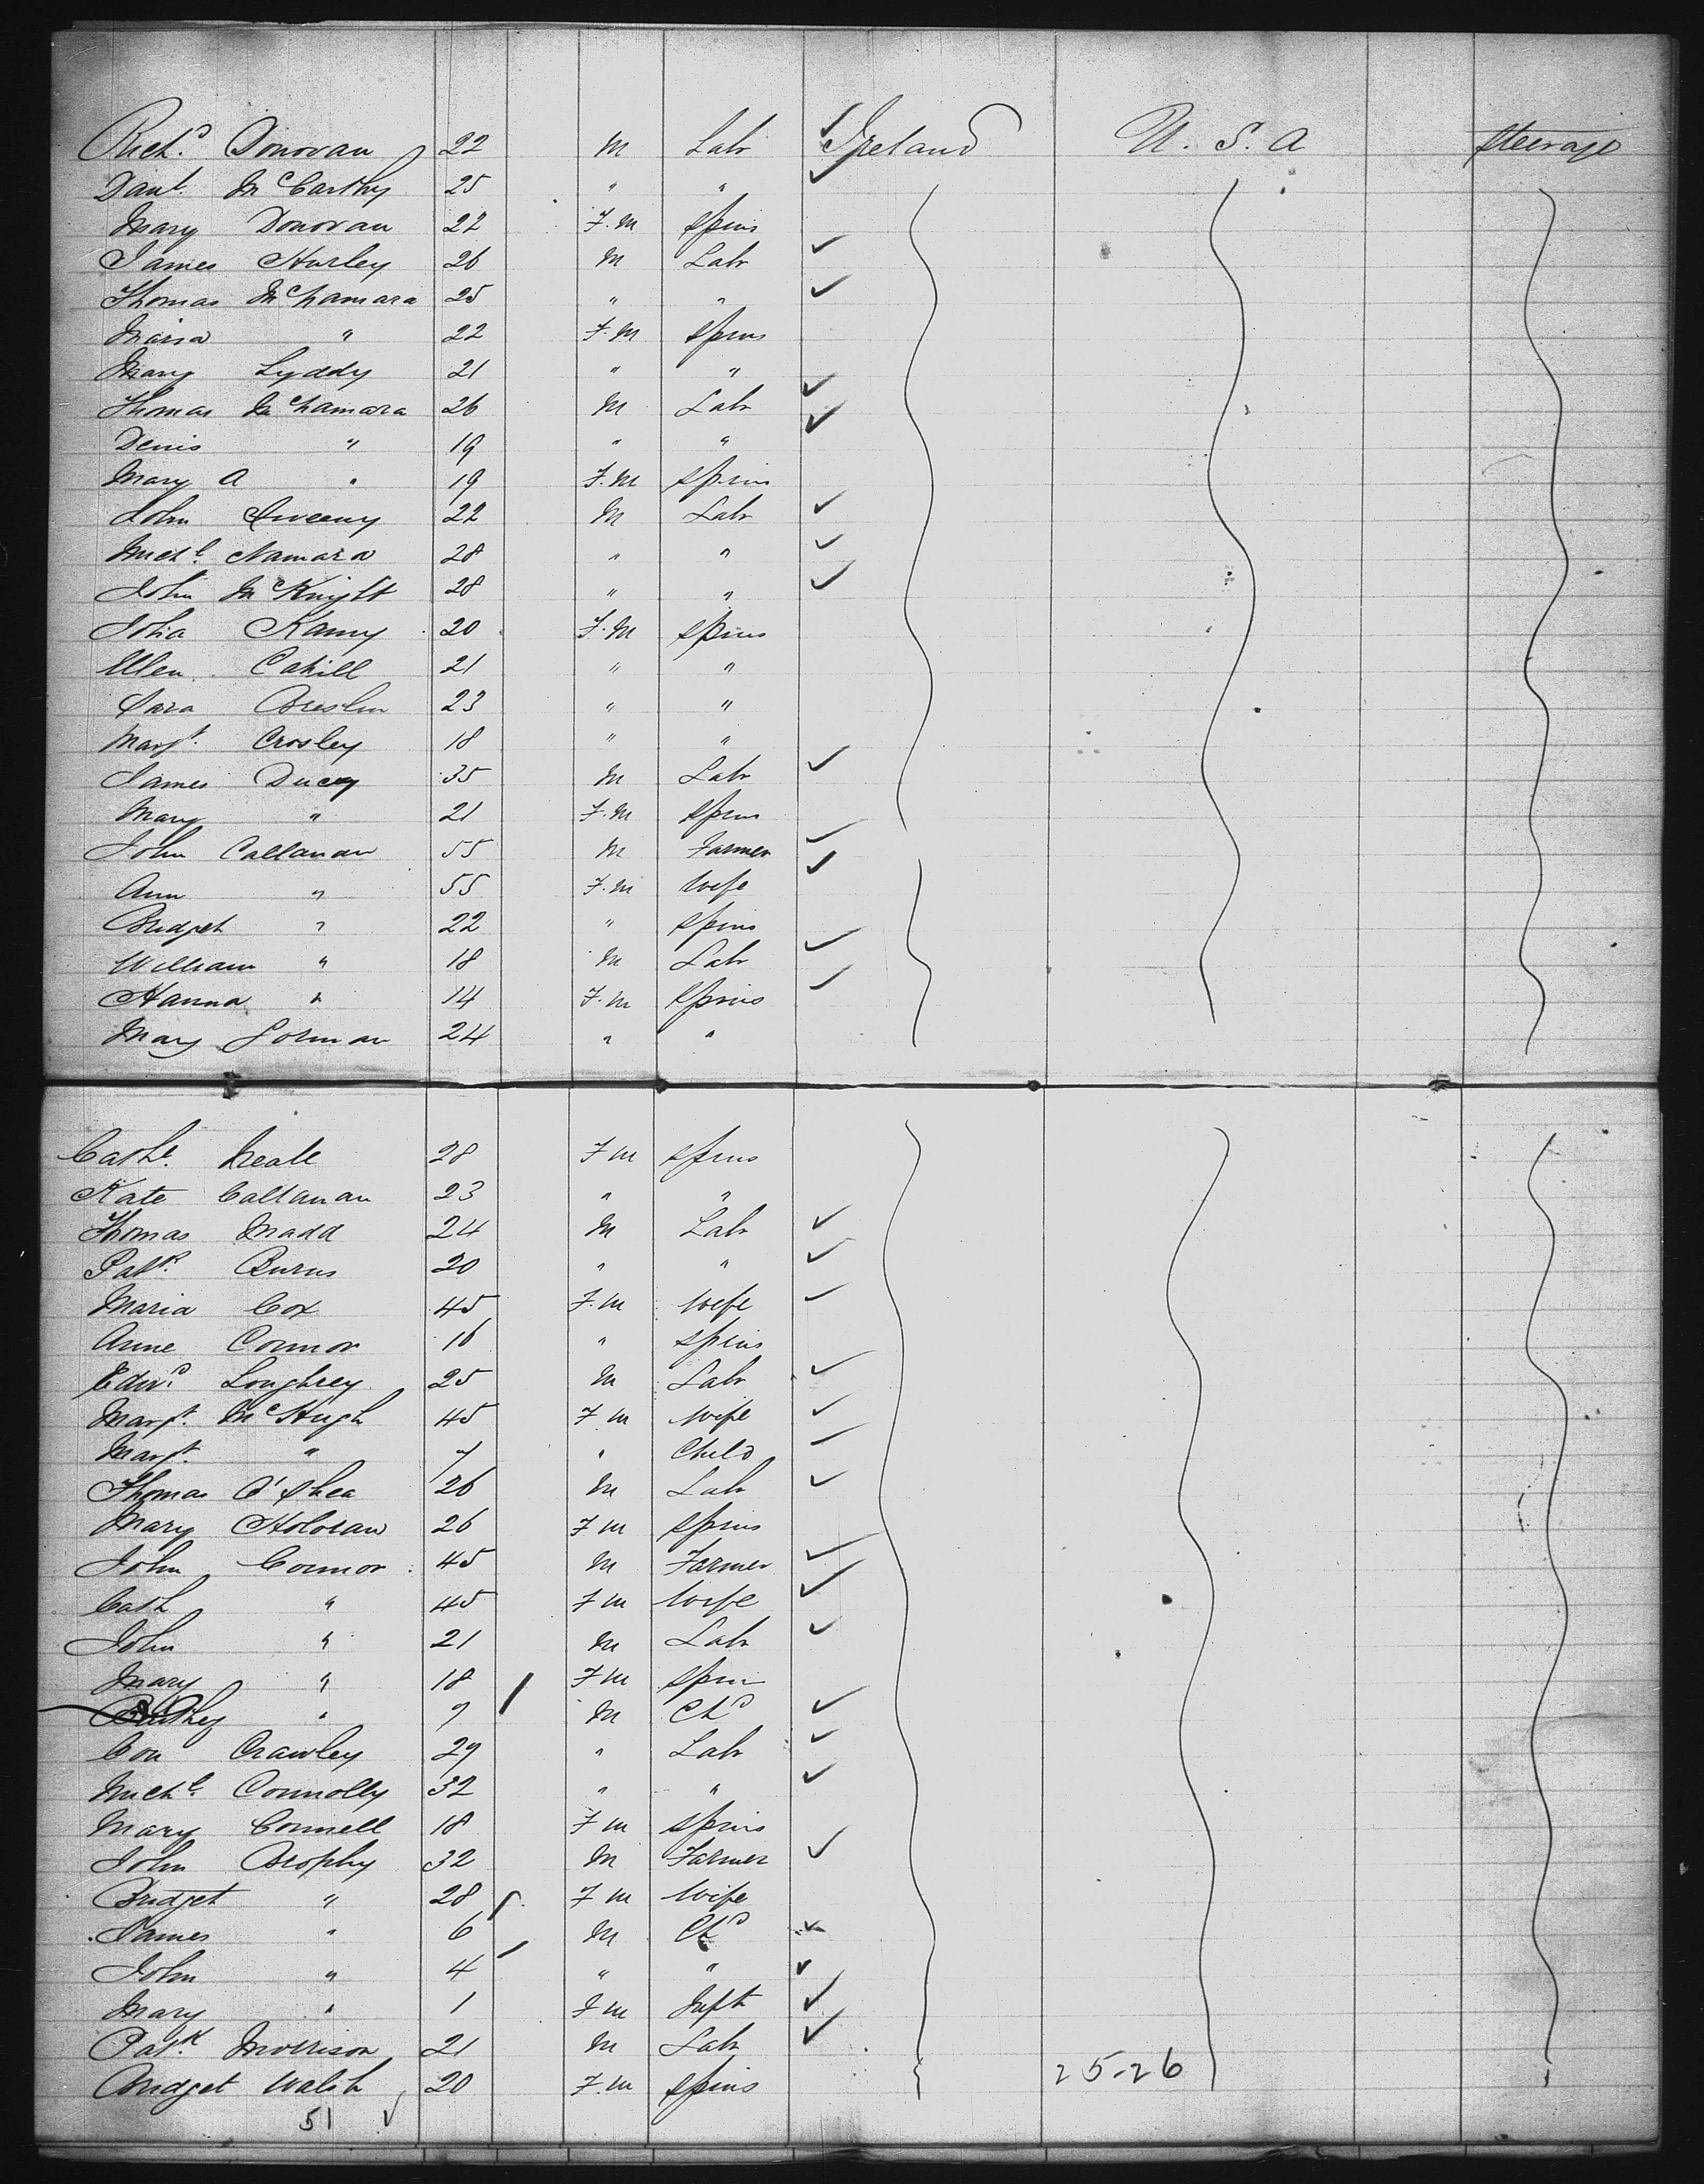 Richd. Donovan 22 M Labr Ireland U. S. A Steerage
Danl. McCarthy 25 " "
Mary Donovan 22 F.M Spins
James Hurley 26 M Labr
Thomas McNamara 25 " "
Maria " 22 F.M Spins
Mary Lyddy 21 " "
Thomas McNamara 26 M Labr
Denis " 19 " "
Mary A " 19 F.M Spins
John Sweeny 22 M Labr
Michl. Namara 28 " "
John McKnight 28 " "
Kanny 20 F.M Spins
Ellen Cahill 21 " "
Sara Breslin 23 " "
Margt. Crosley 18 " "
James Ducey 35 M Labr
Mary " 21 F.M Spins
John Callanan 55 M Farmer
Ann " 55 F.M Wife
Bridget " 22 " Spins
William " 18 M Labr
Hanna " 14 F.M Spins
Mary Gorman 24 " "
Cathe. Neale 28 F M Spins
Kate Callanan 23 " "
Thomas Madd 24 M Labr
Patk. Burns 20 " "
Maria Cox 45 F.M Wife
Anne Connor 16 " Spins
Edwd. Loughrey 25 M Labr
Margt. McHugh 45 F M Wife
Margt. " 7 " Child
Thomas O'Shea 26 M Labr
Mary Holoran 26 F M Spins
John Connor 45 M Farmer
Cath " 45 F M Wife
John " 21 M Labr
Mary " 18 F M Spin
" 7 M Chd
Con Crawley 29 " Labr
Michl. Connolly 32 " "
Mary Connell 18 F M Spins
John Brophy 32 M Farmer
Bridget " 28 F M Wife
James " 6 M Chd
John " 4 " "
Mary " 1 F M Inft
Patk. Morrison 21 M Labr
Bridget Walsh 20 F.M Spins 25-26
51